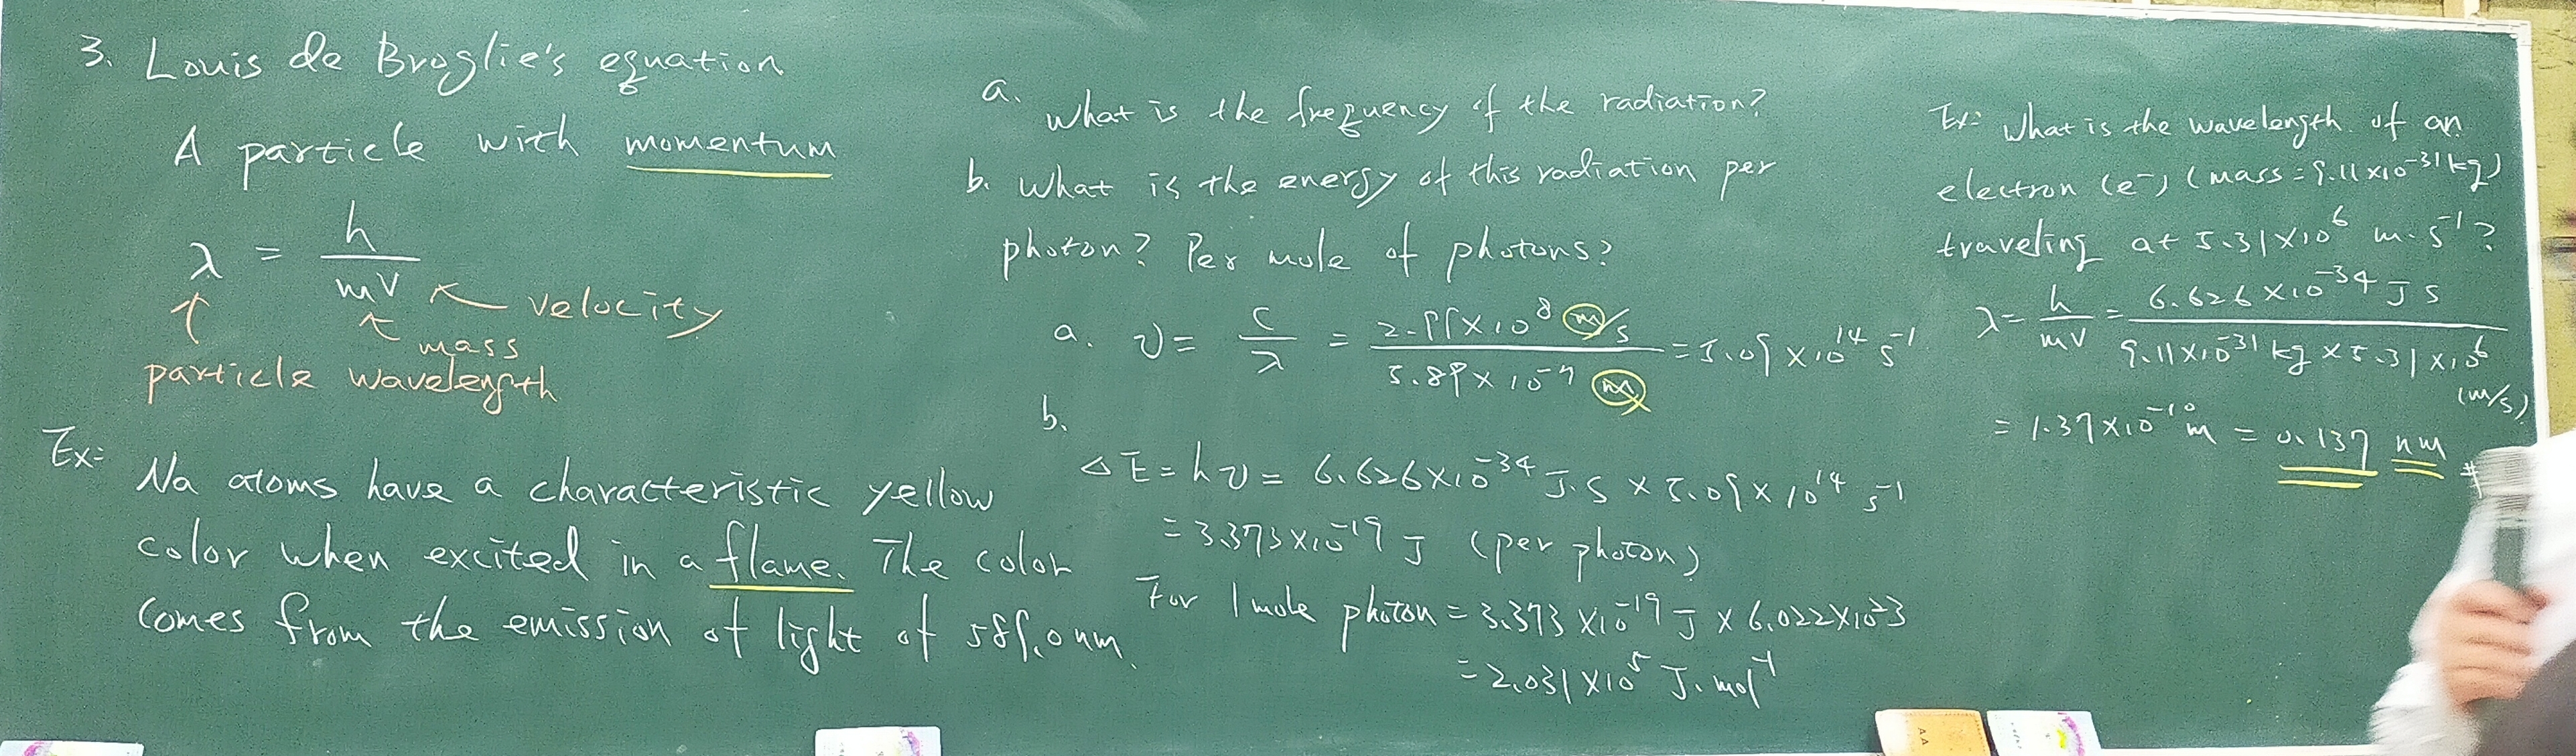 3. Louis de Broglie's equation
A particle with momentum
λ = h / mv
velocity
mass
particle wavelength
Ex: Na atoms have a characteristic yellow
color when excited in a flame. The color
comes from the emission of light of 589.0 nm.
a. What is the frequency of the radiation?
b. What is the energy of this radiation per
photon? Per mole of photons?
a. ν = c / λ = 2.99×10⁸ m/s / 5.89×10⁻⁷ m = 5.09×10¹⁴ s⁻¹
b.
ΔE = hν = 6.626×10⁻³⁴ J·s × 5.09×10¹⁴ s⁻¹
= 3.373×10⁻¹⁹ J (per photon)
For 1 mole photon = 3.373×10⁻¹⁹ J × 6.022×10²³
= 2.031×10⁵ J·mol⁻¹
Ex: What is the wavelength of an
electron (e⁻) (mass = 9.11×10⁻³¹ kg)
traveling at 5.31×10⁶ m·s⁻¹?
λ = h / mv = 6.626×10⁻³⁴ J s / 9.11×10⁻³¹ kg × 5.31×10⁶
(m/s)
= 1.37×10⁻¹⁰ m = 0.137 nm #